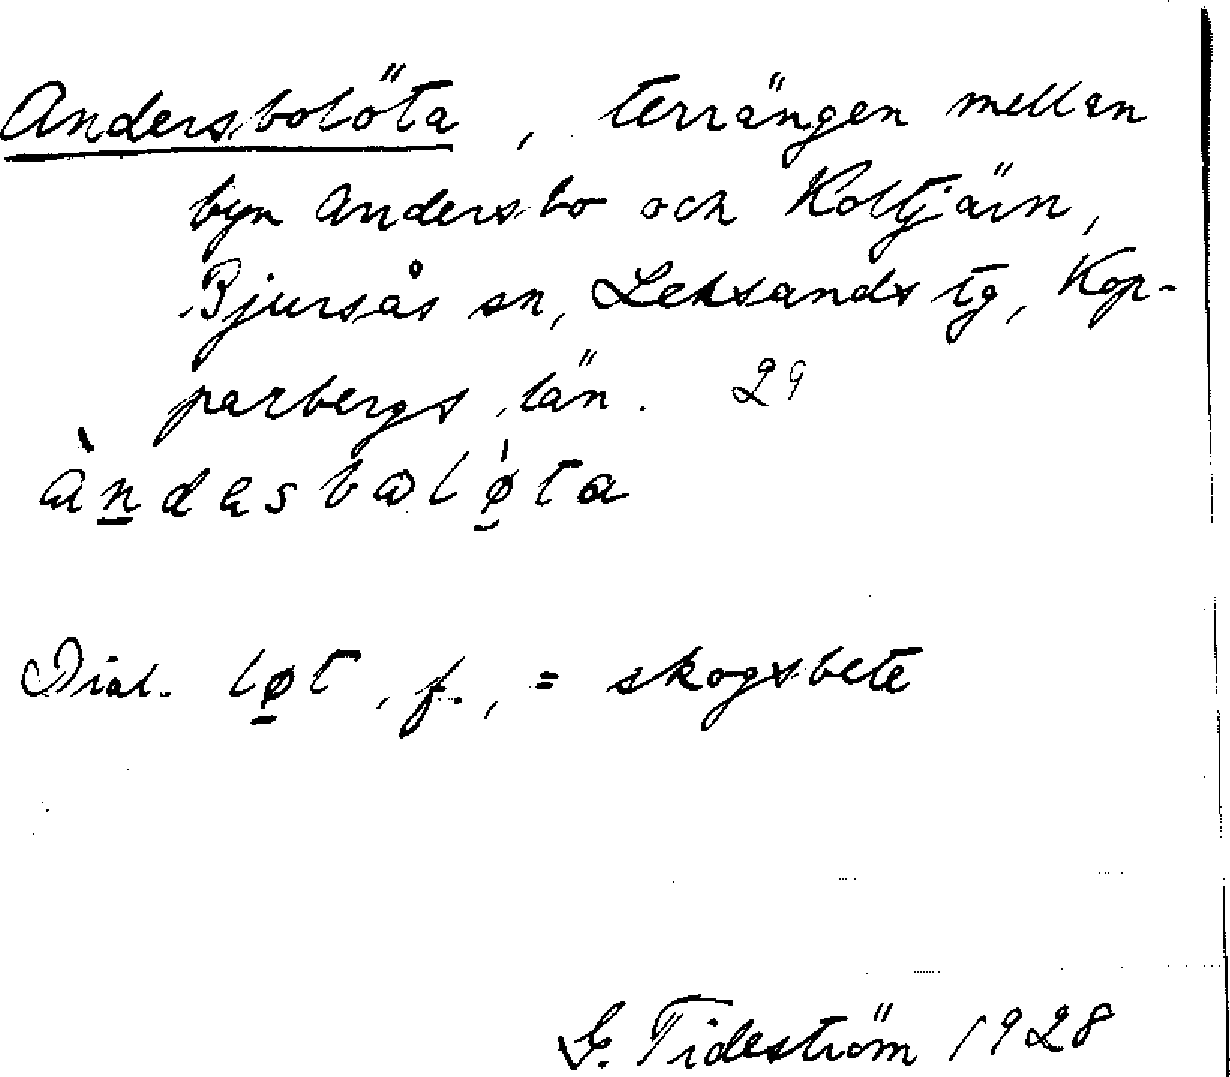 Andersbolöta, terrängen mellan
byn Andersbo och Koltjärn,
Bjursås sn, Leksands tg, Kop-
parbergs län. 29
àn̲dasbalǿ̲ta
Dial. lø̲t, f., = skogsbete
G. Tideström 1928